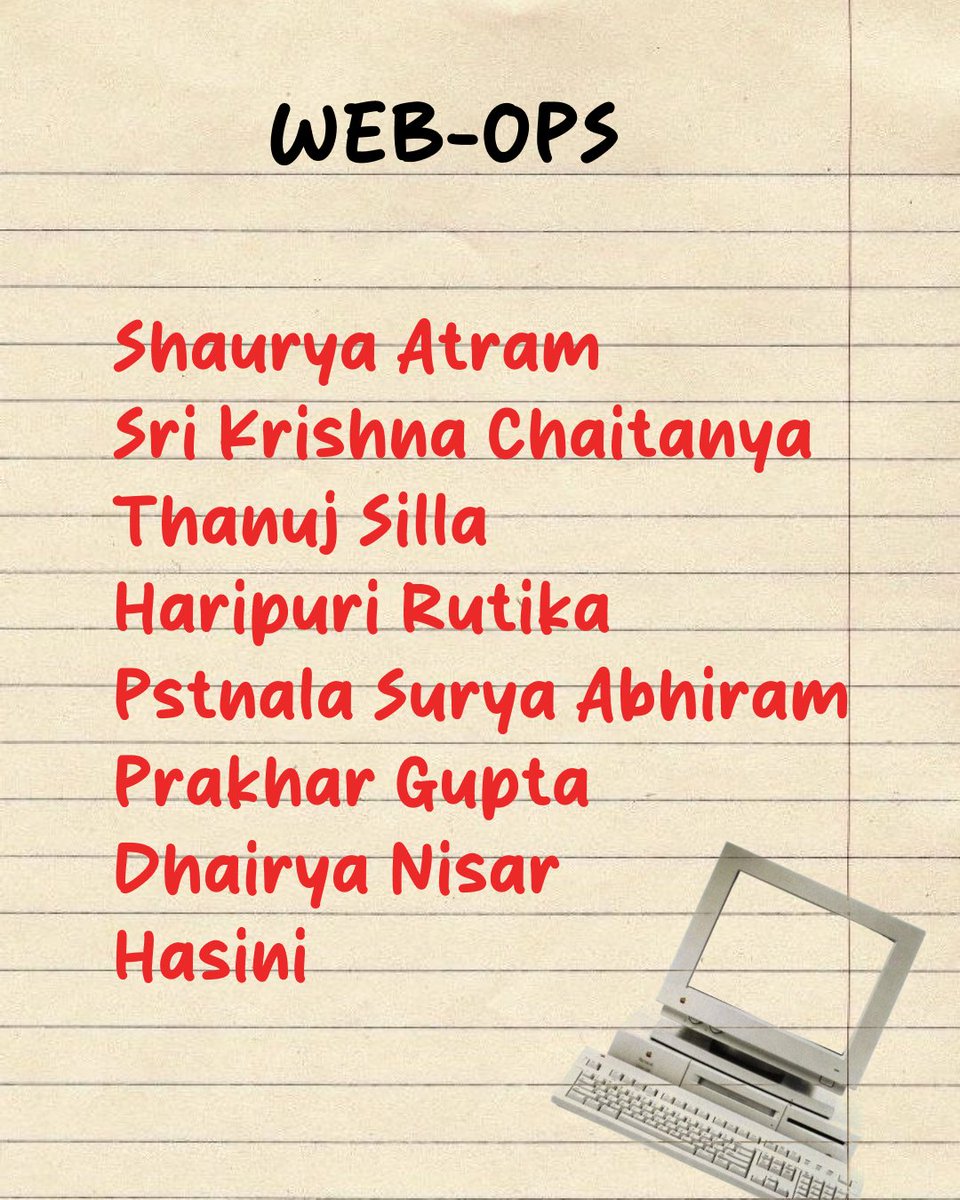 WEB-OPS
Shaurya Atram
Sri Krishna Chaitanya
Thanuj Silla
Haripuri Rutika
Pstnala Surya Abhiram
Prakhar Gupta
Dhairya Nisar
Hasini